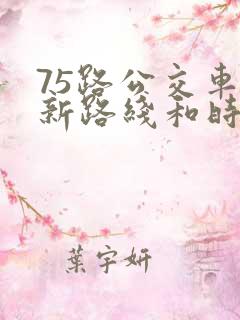 75路公交車
新路綫和時
葉宇妍